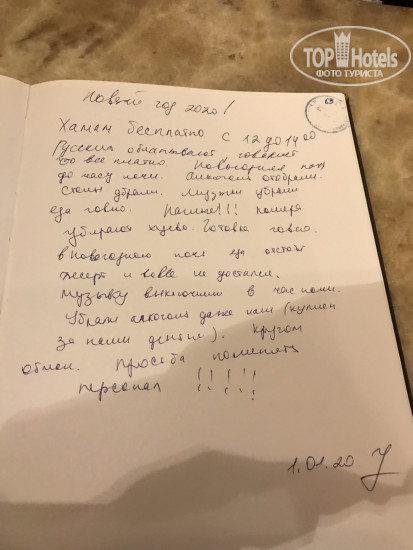 TOP Hotels
ФОТО ТУРИСТА
Новый год 2020!
Хамам бесплатно с 12 до 14 00
Русских обманывают говорят
что все платно. Новогодняя ночь
до часу ночи. Алкоголь отобрали.
Столы убрали. Музыку убрали.
еда говно. Номера
убирают хуево. Готовят говно.
в новогоднюю ночь еда отстой
десерт и вовсе не достался.
музыку выключили в час ночи.
Убрали алкоголь даже наш (куплен
за наши деньги). Кругом
обман. Просьба поменять
персонал !!!!!
1.01.20.